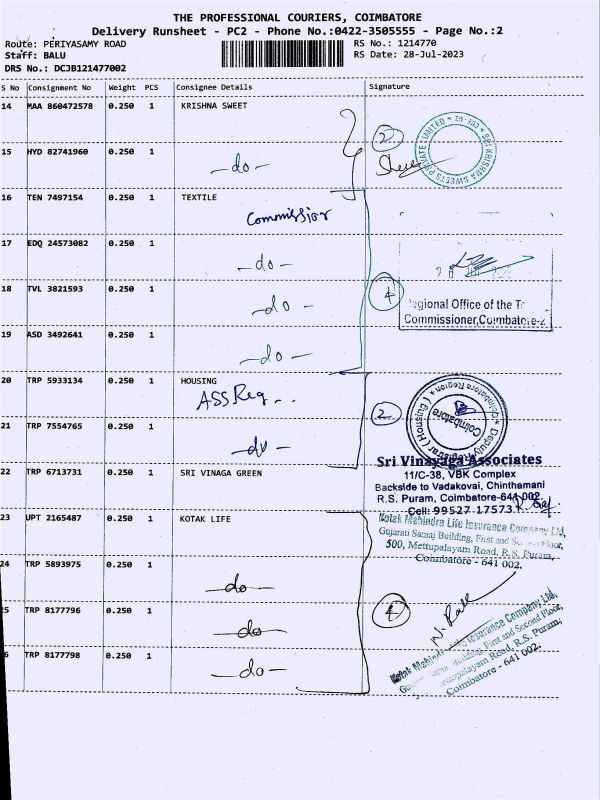 THE PROFESSIONAL COURIERS, COIMBATORE
Delivery Runsheet - PC2 - Phone No.:0422-3505555 - Page No.:2
Route: PERIYASAMY ROAD
RS No.: 1214770
Staff: BALU
RS Date: 28-Jul-2023
DRS No.: DCJB121477002
S No Consignment No Weight PCS Consignee Details Signature
14 MAA 860472578 0.250 1 KRISHNA SWEET
2
SRI KRISHNA SWEETS PRIVATE LIMITED
15 HYD 82741960 0.250 1
-do-
16 TEN 7497154 0.250 1 TEXTILE
Commissior
17 EDQ 24573082 0.250 1
-do-
18 TVL 3821593 0.250 1
-do-
4
Regional Office of the
Commissioner, Coimbatore-2
19 ASD 3492641 0.250 1
-do-
20 TRP 5933134 0.250 1 HOUSING
ASS Reg..
2
Deputy Registrar (Housing) Coimbatore Region
Coimbatore
21 TRP 7554765 0.250 1
-do-
Sri Vinayaga Associates
22 TRP 6713731 0.250 1 SRI VINAGA GREEN
11/C-38, VBK Complex
Backside to Vadakovai, Chinthamani
R.S. Puram, Coimbatore-641 002.
Cell: 99527 17573
23 UPT 2165487 0.250 1 KOTAK LIFE
Kotak Mahindra Life Insurance Company Ltd,
Gujarati Samaj Building, First and Second Floor,
500, Mettupalayam Road, R.S. Puram,
Coimbatore - 641 002.
24 TRP 5893975 0.250 1
-do-
25 TRP 8177796 0.250 1
-do-
4
Kotak Mahindra Life Insurance Company Ltd,
Building, First and Second Floor,
Mettupalayam Road, R.S. Puram,
Coimbatore - 641 002.
6 TRP 8177798 0.250 1
-do-